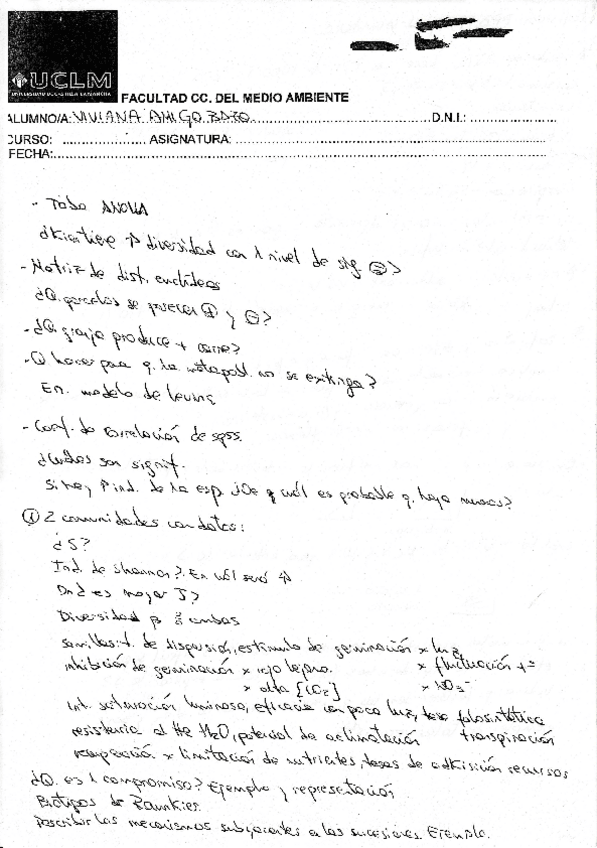 UCLM
UNIVERSIDAD DE CASTILLA-LA MANCHA
FACULTAD CC. DEL MEDIO AMBIENTE
ALUMNO/A: VIVIANA AMIGO D.N.I.:
CURSO: ASIGNATURA:
FECHA:
- Tabla ANOVA
diversidad con 1 nivel de sig.
- Matriz de dist. euclídeas
¿Q. parcelas se parecen ⊕ y ⊖?
- ¿Q. granja produce + carne?
- Q hacer para q. la metapobl. no se extinga?
En. modelo de Levins
- Coef. de correlación de spss.
¿Cuáles son signif.
Si hay 1 ind. de la esp. ¿De cuál es probable q. haya menos?
① 2 comunidades con datos:
¿S?
Ind. de Shannon? En cuál será ↑
es mayor J?
Diversidad β ambas
semillas: t. de dispersión, estimulo de germinación x luz
inhibición de germinación x rojo lejano. x fluctuación tª
x alta [CO2] x NO3-
Int. saturación luminosa, eficacia con poca luz, tasa fotosintética
resistencia al H2O, potencial de aclimatación transpiración
recuperación x limitación de nutrientes, tasas de adkisición recursos
¿Q. es 1 compromiso? Ejemplo y representación
Biotipos de Raunkier.
Describir los mecanismos subyacentes en las sucesiones. Ejemplo.